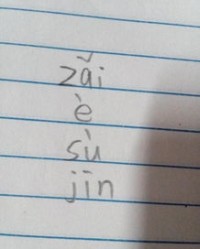 zǎi
è
sù
jīn